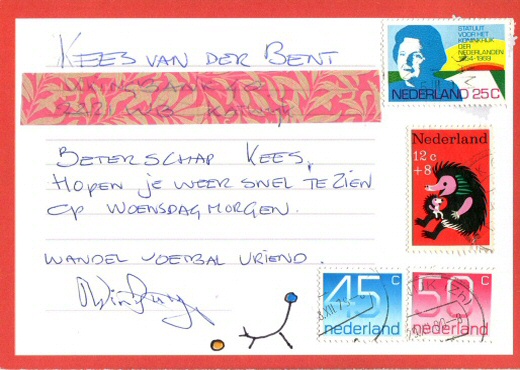 KEES VAN DER BENT
BETERSCHAP KEES,
HOPEN JE WEER SNEL TE ZIEN
OP WOENSDAGMORGEN.
WANDEL VOETBAL VRIEND.
STATUUT
VOOR HET
KONINKRIJK
DER
NEDERLANDEN
1954-1969
NEDERLAND 25 C
Nederland
12 c
+8
45 c
nederland
50 c
nederland